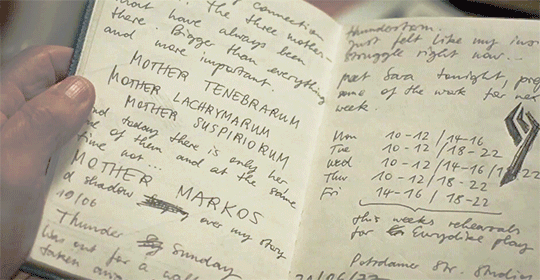 of connection
... The three mother-
that have always been
there. Bigger than everything
and more important.
MOTHER TENEBRARUM
MOTHER LACHRYMARUM
MOTHER SUSPIRIORUM
and today there is only her
of them and at the same
time not...
MOTHER MARKOS
a shadow over my story
19/06
Thunder Sunday
Was out for a walk
taken
thunderstorm.
Just felt like my
struggle right now...
meet Sara tonight,
some of the work for
week.
Mon 10-12 / 14-16
Tue 10-12 / 18-22
Wed 10-12 / 14-16 /
Thur 10-12 / 18-22
Fri 14-16 / 18-22
this weeks rehearsals
for Eurydike play
Potsdamer Str.